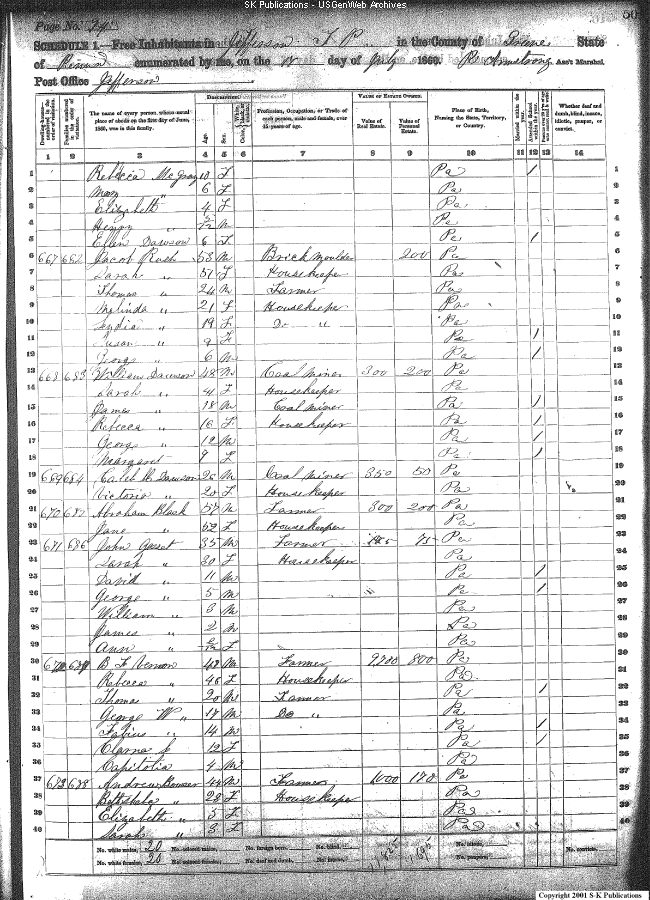 SK Publications - USGenWeb Archives
Page No. 94
SCHEDULE 1.—Free Inhabitants in Jefferson T P in the County of Greene State
of Penna enumerated by me, on the day of July 1860. Armstrong Ass't Marshal.
Post Office Jefferson
Dwelling-houses numbered in the order of visitation.
Families numbered in the order of visitation.
The name of every person whose usual place of abode on the first day of June, 1860, was in this family.
DESCRIPTION.
Age.
Sex.
Profession, Occupation, or Trade of each person, male and female, over 15 years of age.
VALUE OF ESTATE OWNED.
Value of Real Estate.
Value of Personal Estate.
Place of Birth, Naming the State, Territory, or Country.
Married within the year.
Attended School within the year.
Whether deaf and dumb, blind, insane, idiotic, pauper, or convict.
1 2 3 4 5 6 7 8 9 10 11 12 13 14
1 Rebecca McGray 10 f Pa / 1
2 Mary " 6 f Pa 2
3 Elizabeth " 4 f Pa 3
4 Henry " 5/12 m Pa 4
5 Ellen Dawson 6 f Pa / 5
6 667 682 Jacob Rush 53 m Brick moulder 200 Pa 6
7 Sarah " 51 f Housekeeper Pa 7
8 Thomas " 24 m Farmer Pa 8
9 Melinda " 21 f Housekeeper Pa 9
10 Lydia " 19 f Do " Pa 10
11 Susan " 9 f Pa / 11
12 George " 6 m Pa / 12
13 668 683 William Dawson 48 m Coal miner 300 200 Pa 13
14 Sarah " 41 f Housekeeper Pa 14
15 James " 18 m Coal miner Pa / 15
16 Rebecca " 16 f Housekeeper Pa / 16
17 George " 12 m Pa / 17
18 Margaret " 9 f Pa / 18
19 669 684 Caleb H Dawson 26 m Coal miner 350 50 Pa 19
20 Victoria " 20 f Housekeeper Pa 20
21 670 685 Abraham Black 57 m Farmer 300 200 Pa 21
22 Jane " 52 f Housekeeper Pa 22
23 671 686 John 35 m Farmer 75 Pa 23
24 Sarah " 30 f Housekeeper Pa 24
25 David " 11 m Pa / 25
26 George " 5 m Pa / 26
27 William " 3 m Pa 27
28 James " 2 m Pa 28
29 Ann " f Pa 29
30 672 687 B F Vernon 48 m Farmer 9700 800 Pa 30
31 Rebecca " 46 f Housekeeper Pa 31
32 Thomas " 20 m Farmer Pa / 32
33 George W " 17 m Do " Pa 33
34 Fabius " 14 m Pa / 34
35 12 f Pa / 35
36 Capitolia " 4 Pa 36
37 673 688 Andrew 44 m Farmer 1000 170 Pa 37
38 " 28 f Housekeeper Pa 38
39 Elizabeth " 5 f Pa 39
40 Sarah " 3 f Pa 40
No. white males, 20 No. colored males, No. foreign born, No. blind, 11,825 1,695 No. idiotic, No. convicts,
No. white females, 20 No. colored females, No. deaf and dumb, No. insane, No. paupers,
Copyright 2001 S-K Publications